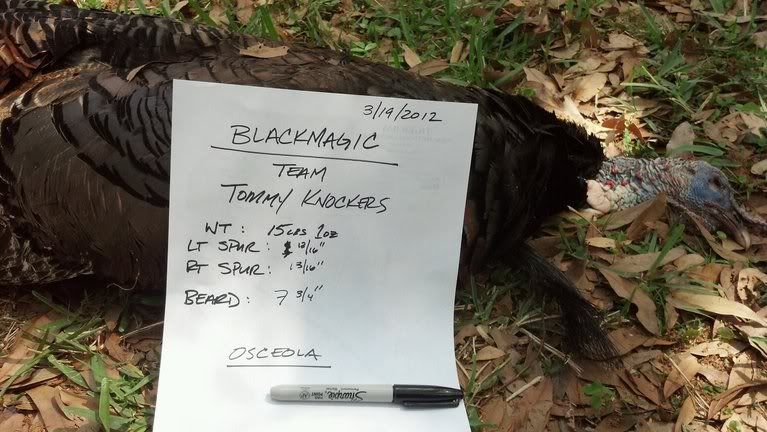 3/19/2012
BLACKMAGIC
TEAM
TOMMY KNOCKERS
WT: 15 LBS 1oz
LT SPUR: 13/16"
RT SPUR: 13/16"
BEARD: 7 3/4"
OSCEOLA
Sharpie